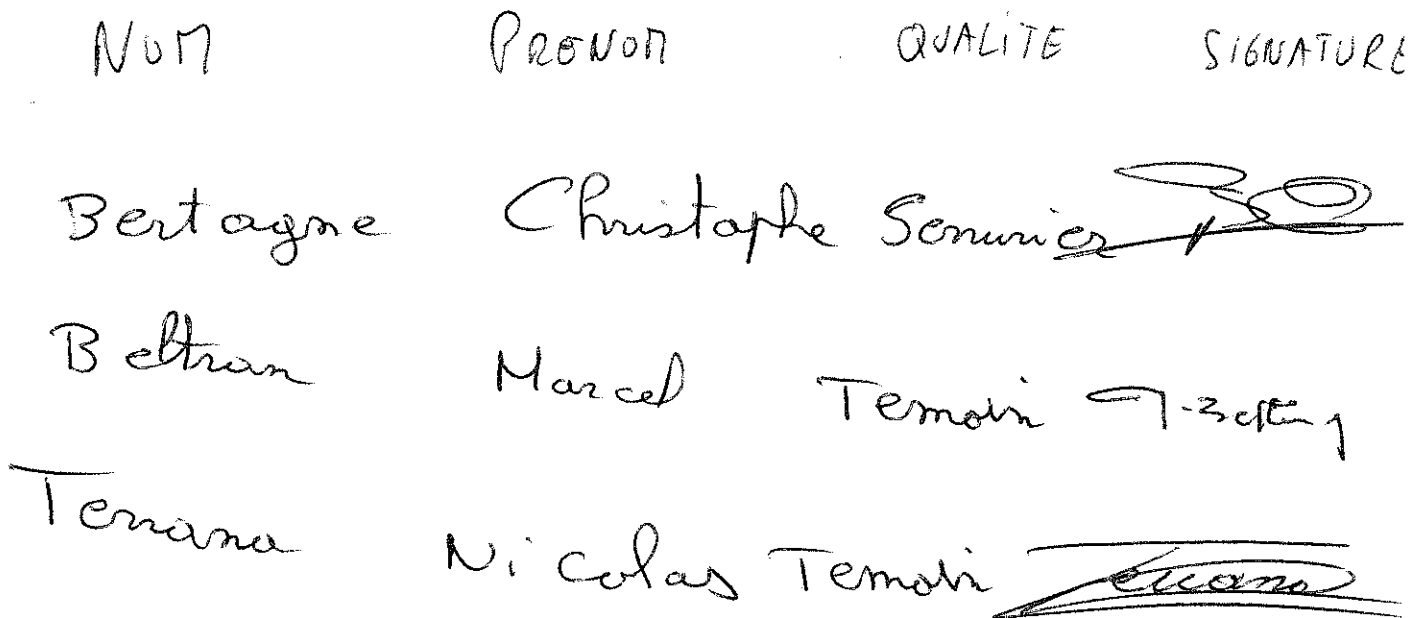 NOM PRENOM QUALITE SIGNATURE
Bertagne Christophe Serrurier
Beltran Marcel Temoin
Terrana Nicolas Temoin Terrana